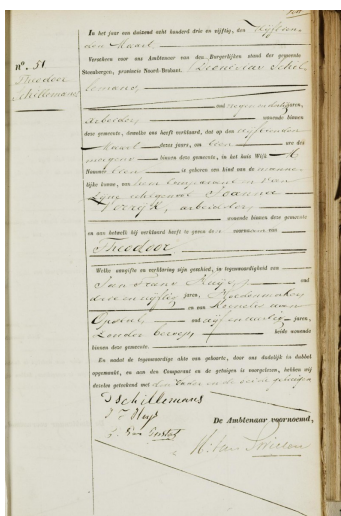 N°. 51
Theodoor
Schillemans
In het jaar een duizend acht honderd drie en vijftig, den vijftien-
den Maart
Verscheen voor ons Ambtenaar van den Burgerlijken stand der gemeente
Steenbergen, provincie Noord-Brabant, Schil-
lemans,
oud negen en dertig jaren,
arbeider, wonende binnen
deze gemeente, dewelke ons heeft verklaard, dat op den vijftienden
Maart dezes jaars, om een ure des
morgens binnen deze gemeente, in het huis Wijk A
Nummer is geboren een kind van de manne-
lijke kunne, van hem Comparant en van
zijne echtgenoot Joanna
arbeidster,
wonende binnen deze gemeente
en aan hetwelk hij verklaard heeft te geven den voornaam van
Theodoor
Welke aangifte en verklaring zijn geschied, in tegenwoordigheid van
Jan Frans Huijs, oud
drie en vijftig jaren, Hoedenmaker,
en van Kornelis van
oud vijf en veertig jaren,
Zonder beroep, beide wonende
binnen deze gemeente.
En nadat de tegenwoordige akte van geboorte, door ons dadelijk in dubbel
opgemaakt, en aan den Comparant en de getuigen is voorgelezen, hebben wij
dezelve geteekend met den Vader en de beide getuigen
Schillemans
J F Huijs
De Ambtenaar voornoemd,
van